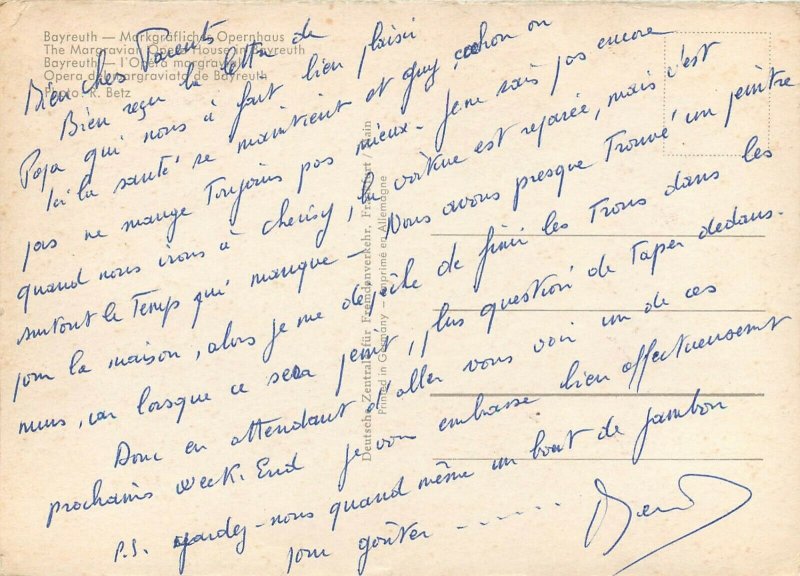 Bayreuth — Markgräfliches Opernhaus
The Margravian Opera House in Bayreuth
Bayreuth — l'Opéra margravial
Opera de margraviata de Bayreuth
Photo: K. Betz
Deutsche Zentrale für Fremdenverkehr, Frankfurt / Main
Printed in Germany — Imprimé en Allemagne
Bien chers Parents
Bien reçu la lettre de
Papa qui nous à fait bien plaisir
Ici la santé se maintient et Guy, cochon on
pas ne mange Toujours pas mieux. Je ne sais pas encore
quand nous irons à Cherisy, la voiture est réparée, mais c'est
surtout le Temps qui manque — Nous avons presque Trouvé un peintre
pour la maison, alors je me dépêche de finir les Trous dans les
murs, car lorsque ce sera peint, plus question de Taper dedans.
Donc en attendant d'aller vous voir un de ces
prochains Week-End je vous embrasse bien affectueusement
P.S. gardez-nous quand même un bout de jambon
pour goûter - - - - - -